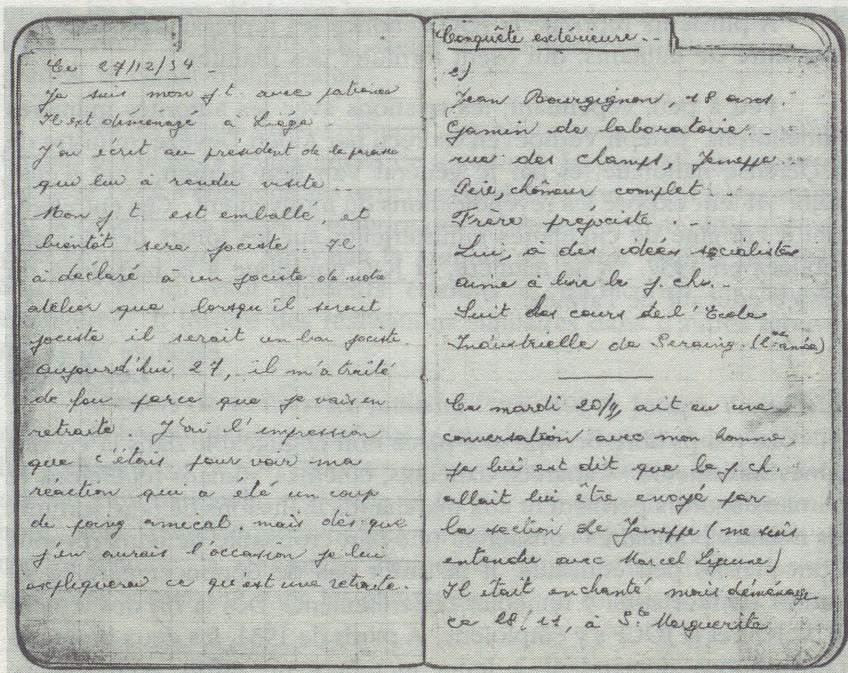 Ce 27/12/34
Je suis mon j t. avec patience
Il est déménagé à Liége
J'en écrit au président de la paroisse
qui lui à rendu visite...
Mon j t. est emballé, et
bientôt sera jociste.. Il
à déclaré à un jociste de notre
atelier que lorsqu'il serait
jociste il serait un bon jociste.
aujourd'hui 27, il m'a traité
de fou parce que je vais en
retraite. J'ai l'impression
que c'étais pour voir ma
réaction qui a été un coup
de poing amical, mais dès que
j'en aurais l'occasion je lui
expliquerai ce qu'est une retraite.
Conquête extérieure...
Jean Bourgignon, 18 ans.
Gamin de laboratoire...
rue des champs, Jemeppe...
Père, chômeur complet...
Frère préjociste...
Lui, à des idées socialistes
aime à lire le j. ch...
Suit des cours de l'Ecole
Industrielle de Seraing. (1ère année)
Ce mardi 20/11, ait eu une
conversation avec mon homme,
je lui est dit que le j. ch.
allait lui être envoyé par
la section de Jemeppe (me suis
entendu avec Marcel Lejeune)
Il était enchanté mais déménage
ce 28/11, à Ste Marguerite